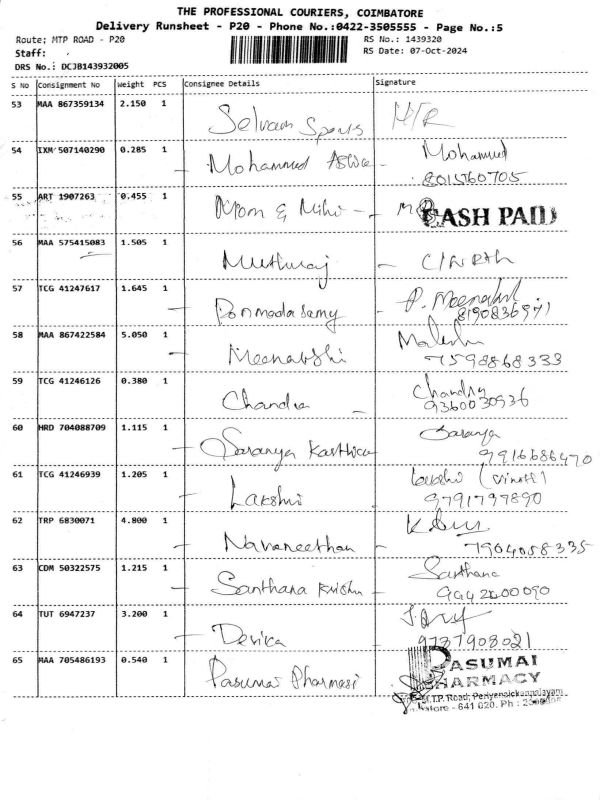 THE PROFESSIONAL COURIERS, COIMBATORE
Delivery Runsheet - P20 - Phone No.:0422-3505555 - Page No.:5
Route: MTP ROAD - P20 RS No.: 1439320
Staff: RS Date: 07-Oct-2024
DRS No.: DCJB143932005
S No Consignment No Weight PCS Consignee Details Signature
53 MAA 867359134 2.150 1 Selvam Sports
54 IXM 507140290 0.285 1 Mohammed Mohammed
8015760705
55 ART 1907263 0.455 1 Mom & Mihi CASH PAID
56 MAA 575415083 1.505 1 Muthuraj
57 TCG 41247617 1.645 1 Ponmodasamy P. Meenakshi
8190836971
58 MAA 867422584 5.050 1 Meenakshi
7598868333
59 TCG 41246126 0.380 1 Chandra Chandra
9360030936
60 HRD 704088709 1.115 1 Saranya Karthica Saranya
9916686470
61 TCG 41246939 1.205 1 Lakshmi
9791797890
62 TRP 6830071 4.800 1 Navaneethan
7904058335
63 CDM 50322575 1.215 1 Santhana Krishn Santhana
9942200090
64 TUT 6947237 3.200 1 Devika
9787908021
65 MAA 705486193 0.540 1 Pasumai Pharmasi PASUMAI
PHARMACY
M.T.P. Road, Periyanaickenpalayam
- 641 020. Ph :